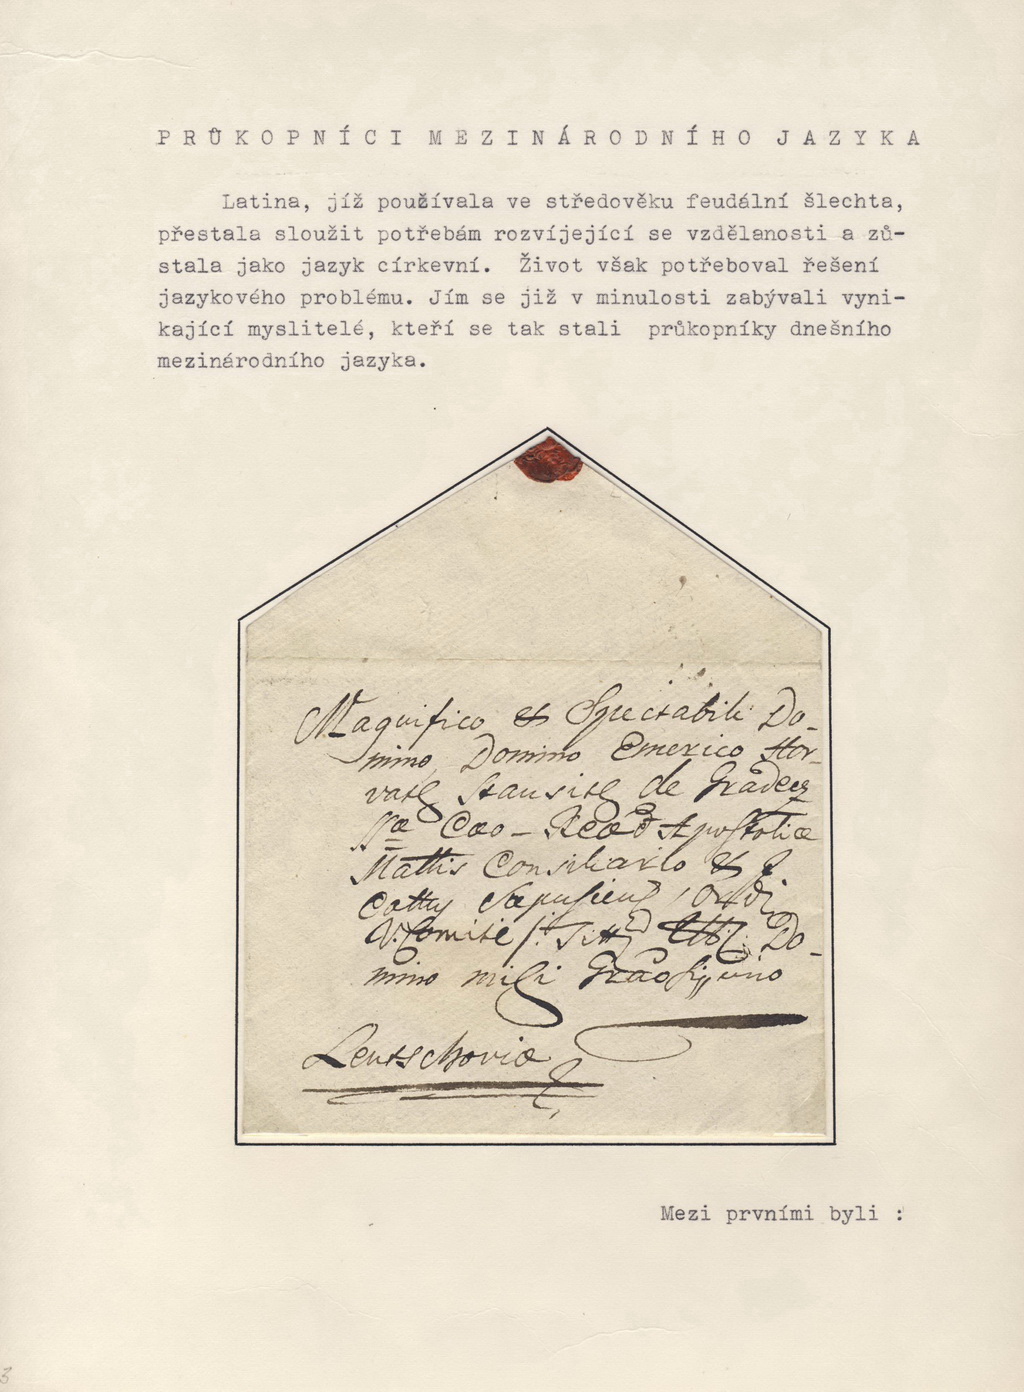 PRŮKOPNÍCI MEZINÁRODNÍHO JAZYKA
Latina, jíž používala ve středověku feudální šlechta,
přestala sloužit potřebám rozvíjející se vzdělanosti a zů-
stala jako jazyk církevní. Život však potřeboval řešení
jazykového problému. Jím se již v minulosti zabývali vyni-
kající myslitelé, kteří se tak stali průkopníky dnešního
mezinárodního jazyka.
Magnifico et Spectabili Do-
mino, Domino Emerico Hor-
vath Stansith de Gradecz
Apostolicae
Mattis Consiliario et
V. Comite Do-
mino mihi
Leutschoviae
Mezi prvními byli :
3